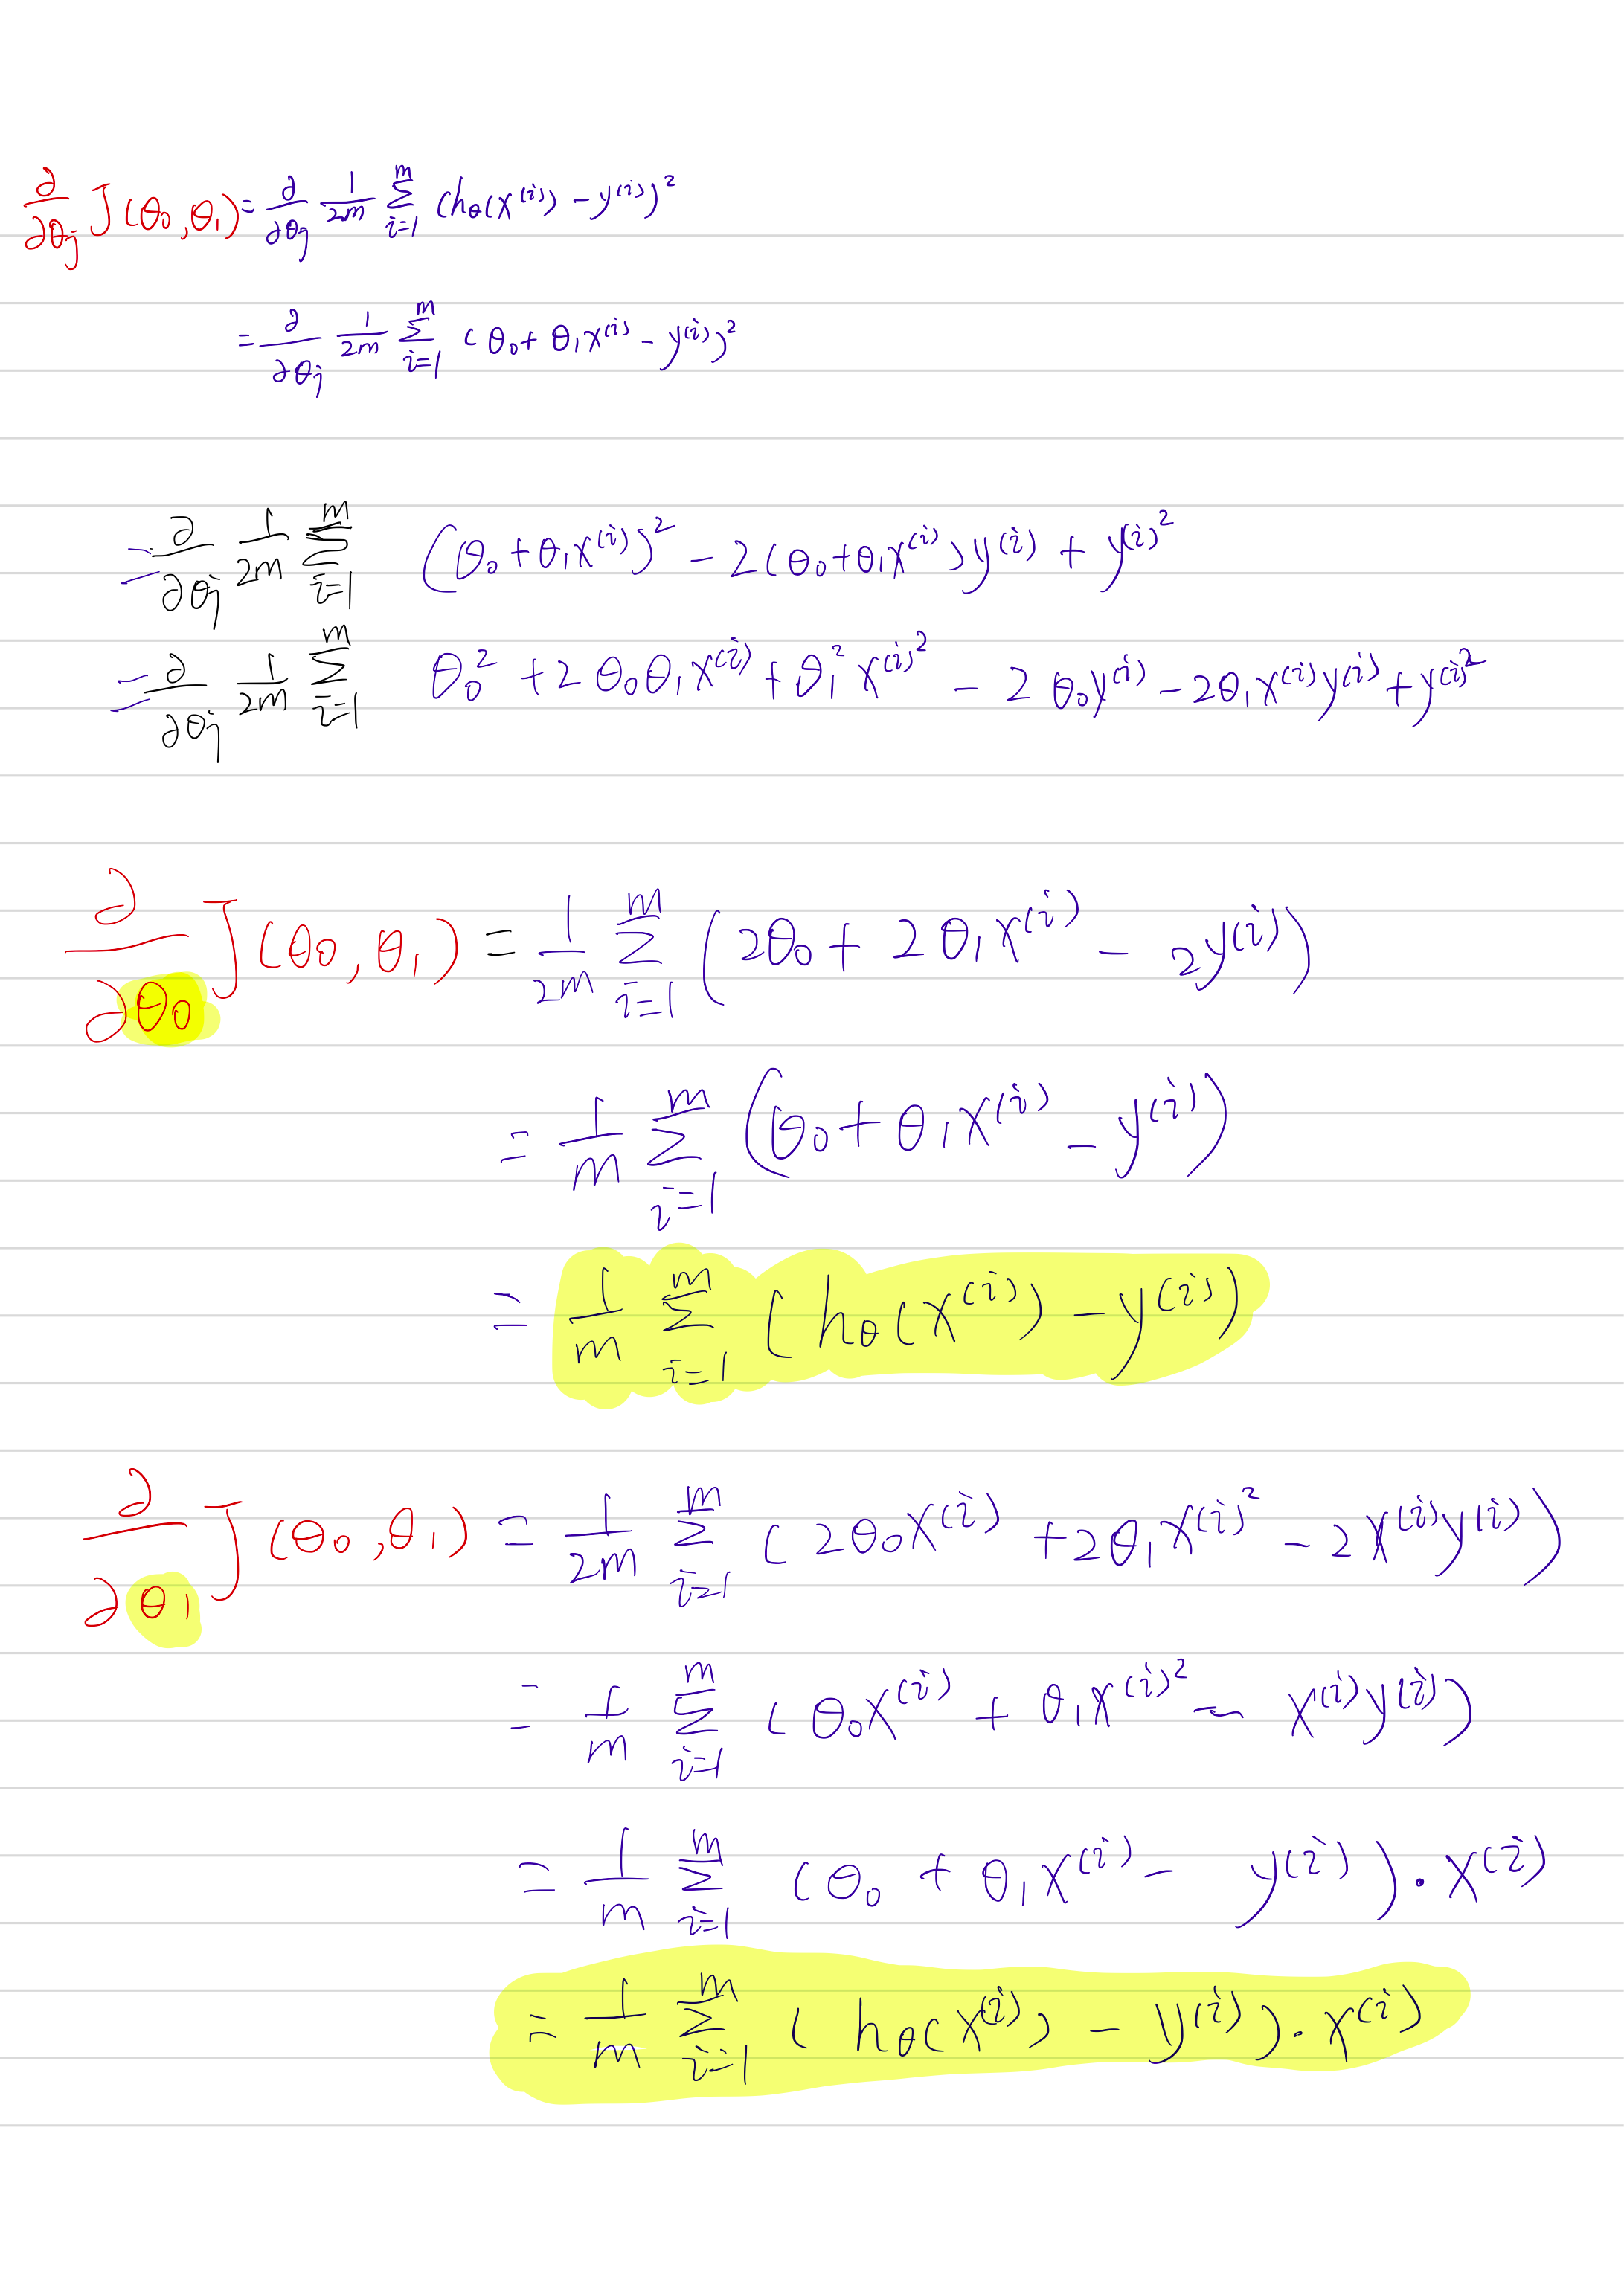 ∂/∂θj J(θ0,θ1) = ∂/∂θj 1/2m Σ_{i=1}^{m} (hθ(x^(i)) − y^(i))²
= ∂/∂θj 1/2m Σ_{i=1}^{m} (θ0 + θ1x^(i) − y^(i))²
= ∂/∂θj 1/2m Σ_{i=1}^{m} (θ0 + θ1x^(i))² − 2(θ0 + θ1x^(i))y^(i) + y^(i)²
= ∂/∂θj 1/2m Σ_{i=1}^{m} θ0² + 2θ0θ1x^(i) + θ1²x^(i)² − 2θ0y^(i) − 2θ1x^(i)y^(i) + y^(i)²
∂/∂θ0 J(θ0,θ1) = 1/2m Σ_{i=1}^{m} (2θ0 + 2θ1x^(i) − 2y^(i))
= 1/m Σ_{i=1}^{m} (θ0 + θ1x^(i) − y^(i))
= 1/m Σ_{i=1}^{m} (hθ(x^(i)) − y^(i))
∂/∂θ1 J(θ0,θ1) = 1/2m Σ_{i=1}^{m} (2θ0x^(i) + 2θ1x^(i)² − 2x^(i)y^(i))
= 1/m Σ_{i=1}^{m} (θ0x^(i) + θ1x^(i)² − x^(i)y^(i))
= 1/m Σ_{i=1}^{m} (θ0 + θ1x^(i) − y^(i))·x^(i)
= 1/m Σ_{i=1}^{m} (hθ(x^(i)) − y^(i))·x^(i)